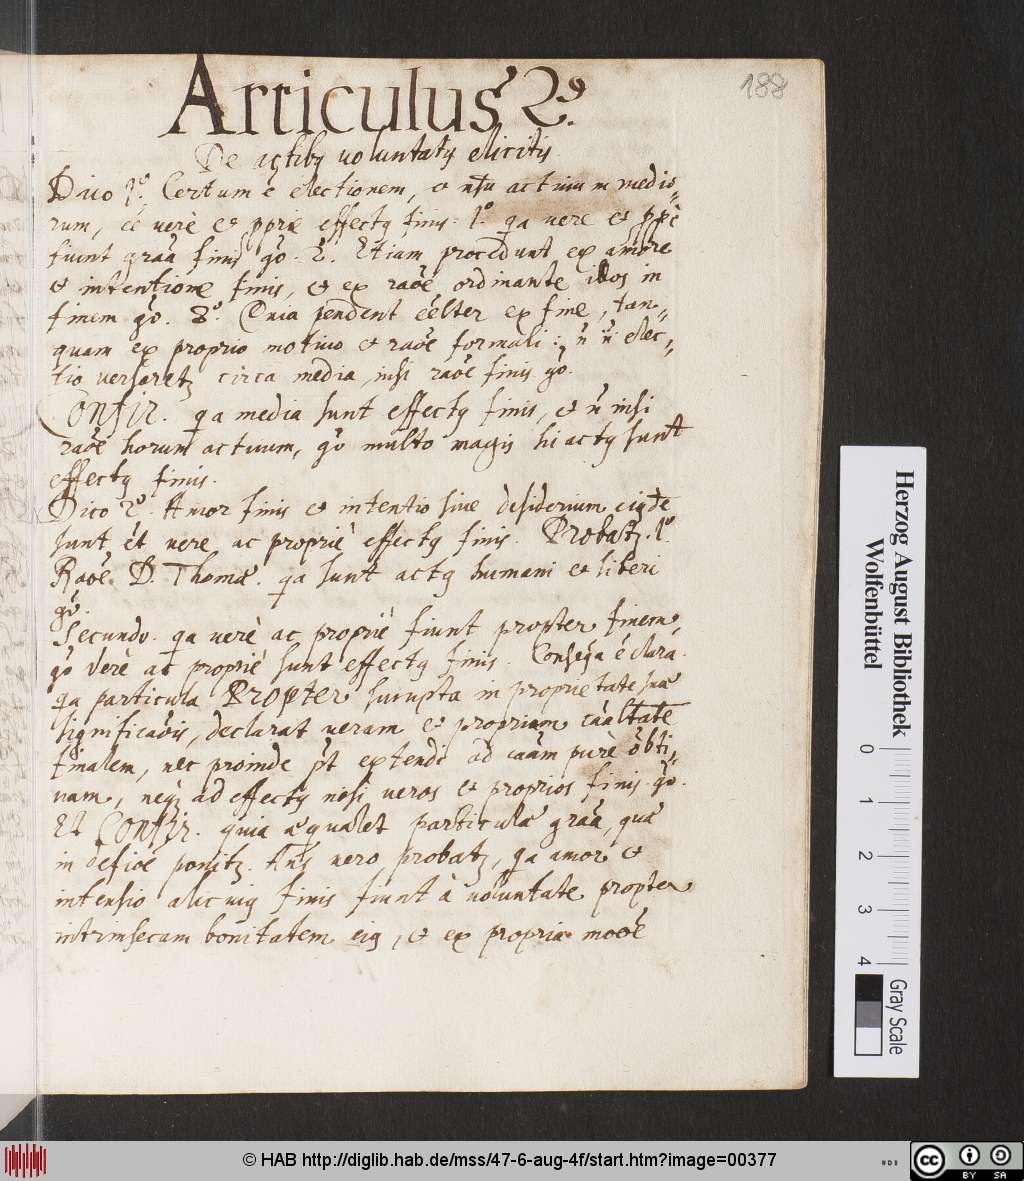 188
Articulus 2.⁹
De actibꝰ voluntatꝭ elicitis
Dico 1.º Certum ē electionem, et actuum medio„
rum, ēē verè et ppriè effectꝰ finis: 1.º qa vere et ppè
fiunt grãa finis gº. 2. Etiam procedunt ex amore
et intentione finis, et ex raõe ordinante illos in
finem gº. 3.º Quia pendent ex fine, tan„
quam ex proprio motivo et raõe formali: ñ .n. elec„
tio versaretꝛ circa media nisi raõe finis gº.
Confir. qa media sunt effectꝰ finis, et ñ nisi
raõe horum actuum, gº multo magis hi actꝰ sunt
effectꝰ finis.
Dico 2.º Amor finis et intentio sive desiderium eiꝰde
sunt ēt vere ac propriè effectꝰ finis. Probatꝛ 1.º
Raõe D. Thomæ. qa sunt actꝰ humani et liberi
gº.
Secundo. qa verè ac propriè fiunt propter finem,
gº verè ac propriè sunt effectꝰ finis. Conseqa ē clara.
qa particula Propter sumpta in proprietate suæ
significaõis, declarat veram et propriam cãaltatē
finalem, nec proinde põt extendi ad cãam purè obti„
vam, neqꝫ ad effectꝰ nisi veros et proprios finis gº.
Et Confir. quia æqualet particulæ grãa, quæ
in defiõe ponitꝛ. Añs vero probatꝛ, qa amor et
intensio alicuiꝰ finis fiunt à voluntate propter
intrinsecam bonitatem eiꝰ, et ex propria moõe
Herzog August Bibliothek
Wolfenbüttel
0 1 2 3 4
Gray Scale
© HAB http://diglib.hab.de/mss/47-6-aug-4f/start.htm?image=00377
cc BY SA